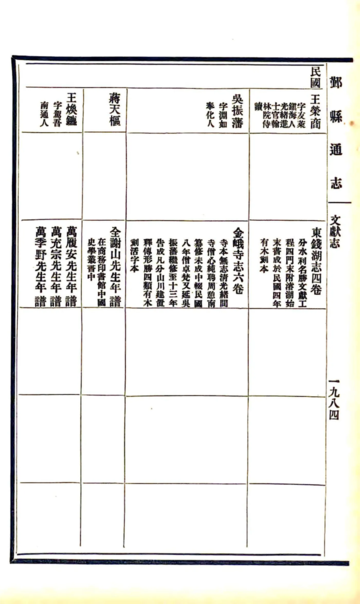 鄞縣通志
文獻志
一九八四
民國
王榮商
字友萊
鎮海人
光緒進
士官翰
林院侍
讀
東錢湖志四卷
分水利名勝文獻工
程四門末附湛湖始
末書成於民國四年
有木刻本
吳振藩
字淵如
奉化人
金峨寺志六卷
寺本無志清光緒間
寺僧心純聘周恵南
纂修未成中輟民國
八年僧卓梵又延吳
振藩繼修至十三年
告成凡分山川建置
釋傳形勝四類有木
刻活字本
蔣天樞
全謝山先生年譜
在商務印書館中國
史學叢書中
王煥鑣
字駕吾
南通人
萬履安先生年譜
萬充宗先生年譜
萬季野先生年譜